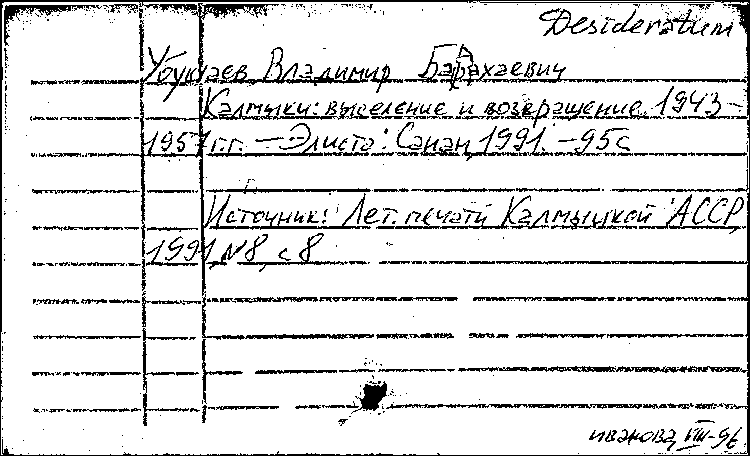 Desideratum
Убушаев Владимир Бадахаевич
Калмыки: выселение и возвращение. 1943-
1957 г.г. — Элиста: Санан, 1991. -95с
Источник: Лет. печати Калмыцкой АССР,
1991, №8, с 8
иванова, VIII-96